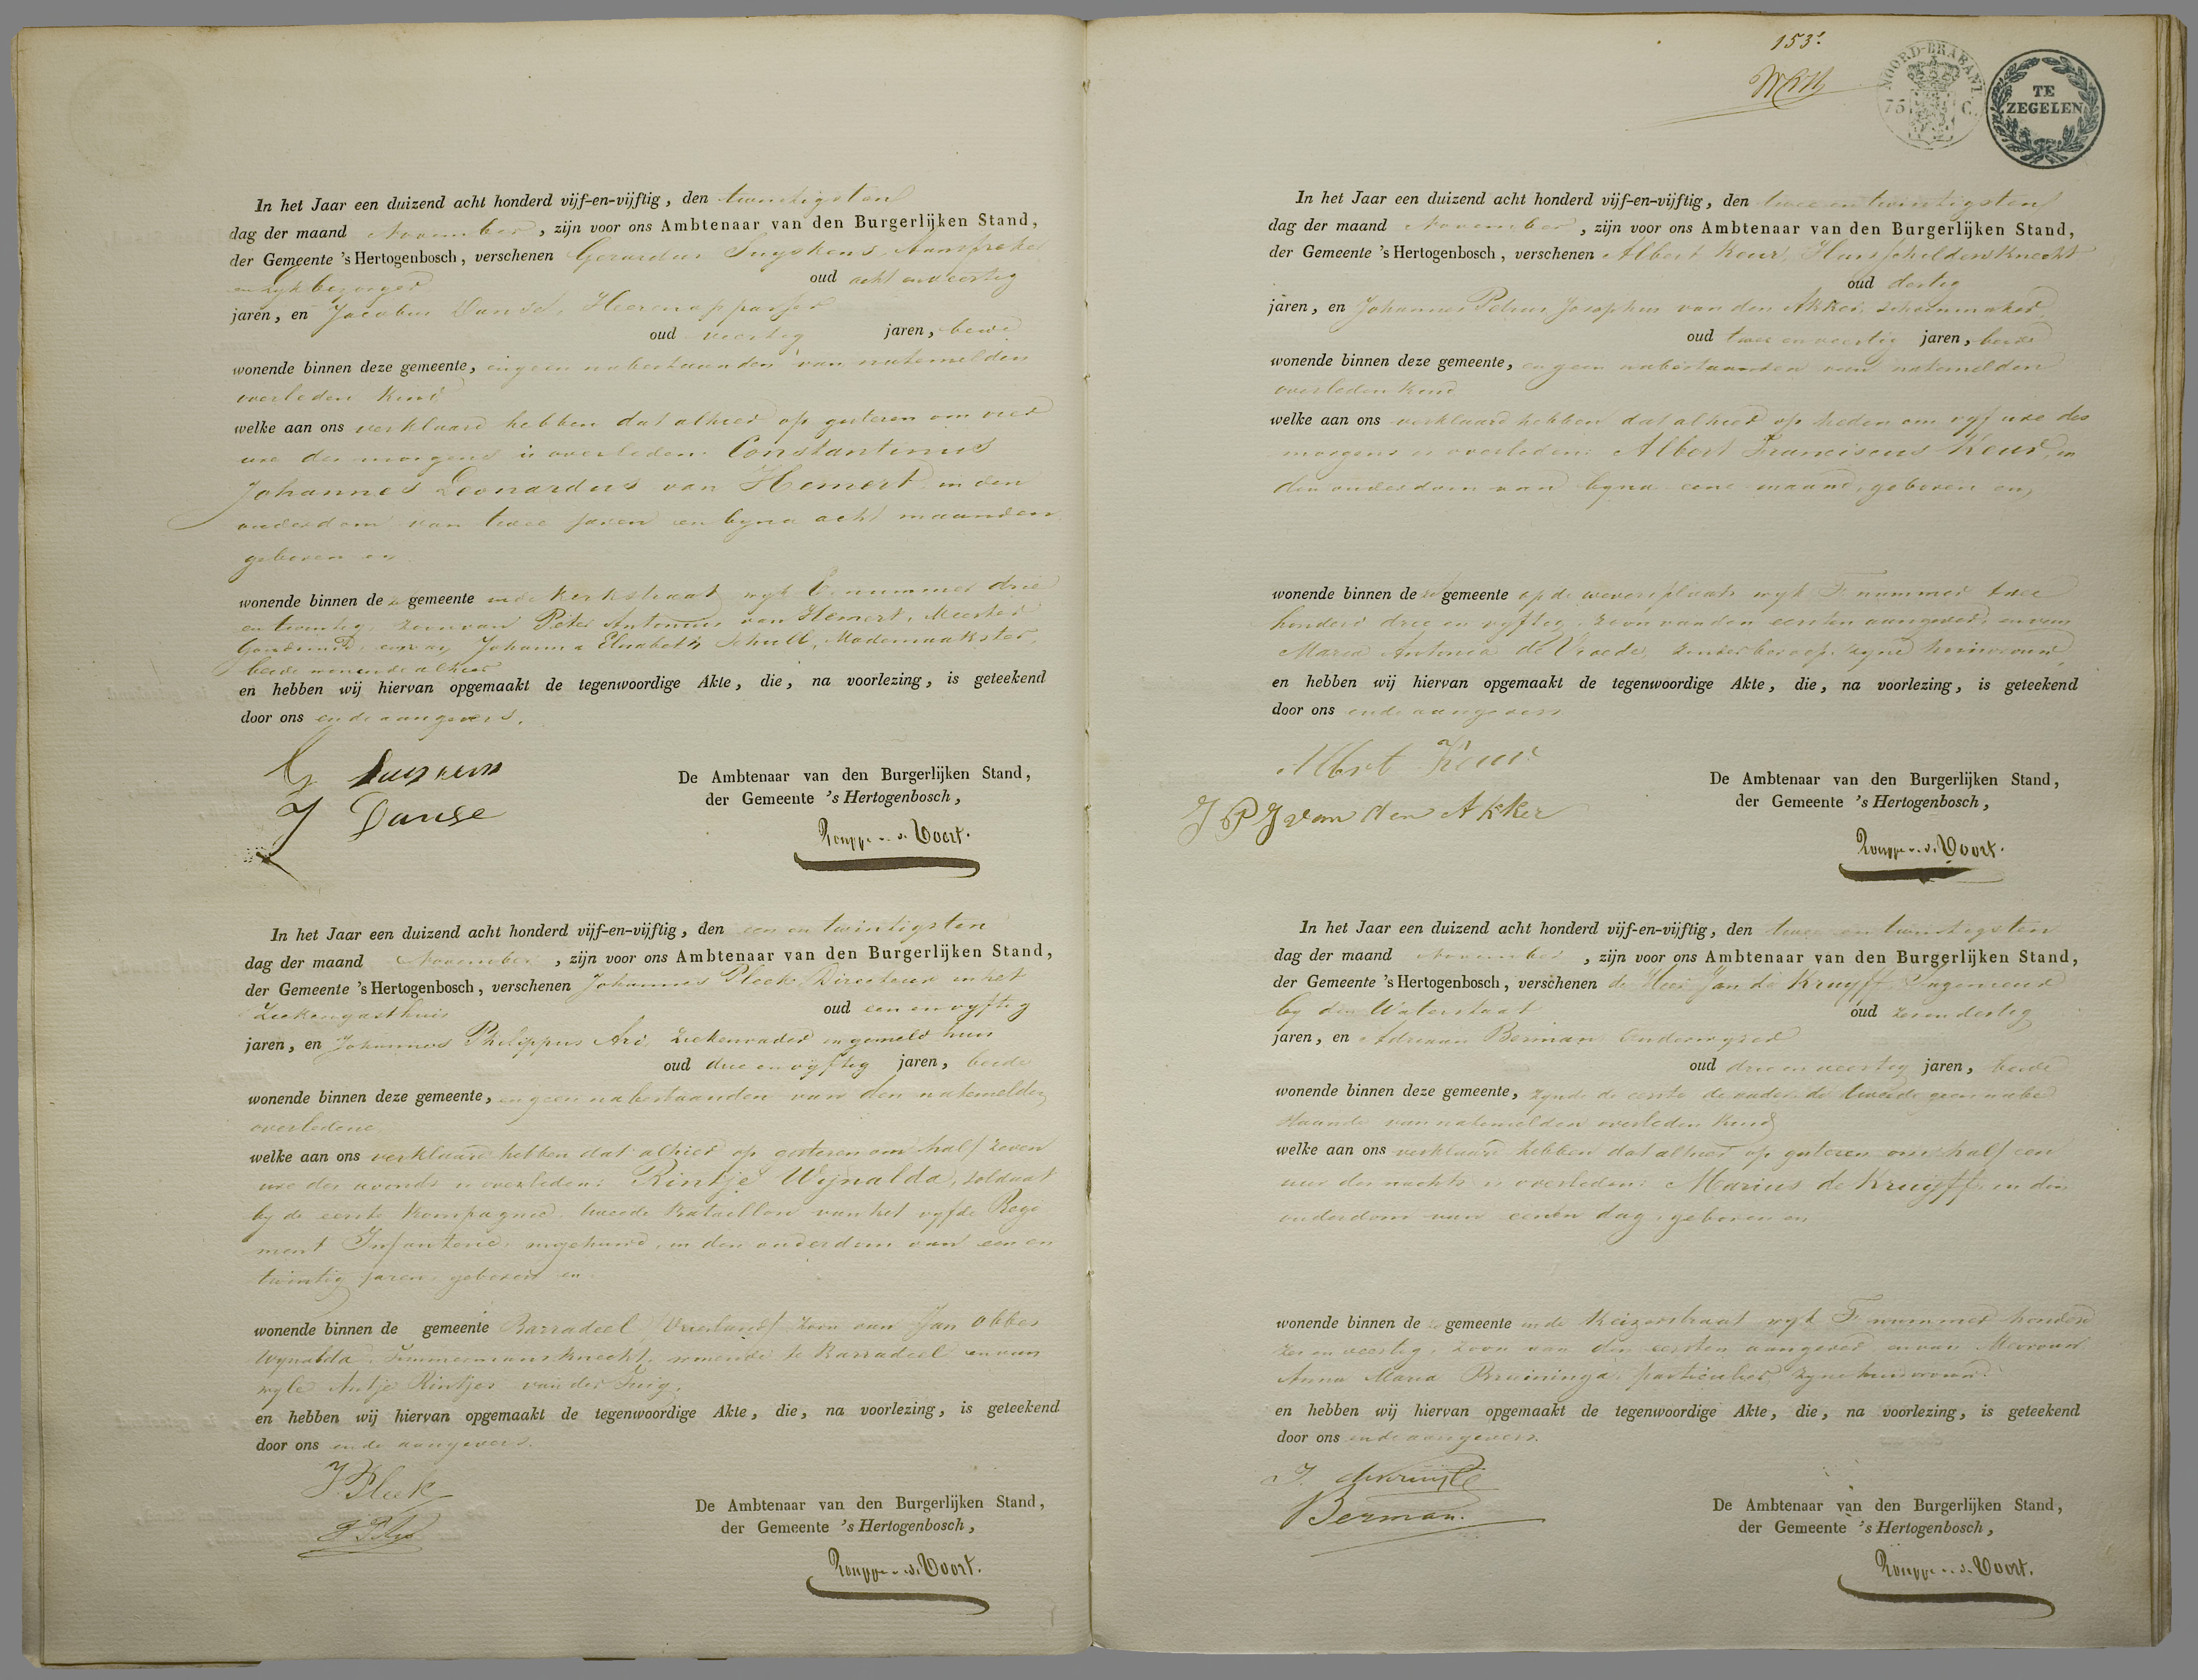 In het Jaar een duizend acht honderd vijf-en-vijftig, den twintigsten
dag der maand November, zijn voor ons Ambtenaar van den Burgerlijken Stand,
der Gemeente 's Hertogenbosch, verschenen Gerardus Suyskens, Aanspreker
en Lykbezorger oud acht en veertig
jaren, en Jacobus Danse, Heerenoppasser
oud veertig jaren, beide
wonende binnen deze gemeente, en geen nabestaanden van natemelden
overleden kind
welke aan ons verklaard hebben dat alhier op gisteren om vier
ure des morgens is overleden: Constantinus
Johannes Leonardus van Hemert, in den
ouderdom van twee jaren en byna acht maanden
geboren en
wonende binnen deze gemeente in de Kerkstraat wyk C nummer drie
en twintig, zoon van Peter Antonius van Hemert, Meester
Goudsmid, en van Johanna Elisabeth Schull, Modemaakster,
beide wonende alhier
en hebben wij hiervan opgemaakt de tegenwoordige Akte, die, na voorlezing, is geteekend
door ons en de aangevers.
G Suyskens
J Danse
De Ambtenaar van den Burgerlijken Stand,
der Gemeente 's Hertogenbosch,
Rouppe v. d. Voort.
In het Jaar een duizend acht honderd vijf-en-vijftig, den een en twintigsten
dag der maand November, zijn voor ons Ambtenaar van den Burgerlijken Stand,
der Gemeente 's Hertogenbosch, verschenen Johannes Pleck, Directeur in het
Ziekengasthuis oud een en vyftig
jaren, en Johannes Philippus Ari, Ziekenvader in gemeld huis
oud drie en vyftig jaren, beide
wonende binnen deze gemeente, en geen nabestaanden van den natemelden
overledene
welke aan ons verklaard hebben dat alhier op gisteren om half zeven
ure des avonds is overleden: Rintje Wijnalda, soldaat
by de eerste Kompagnie tweede Bataillon van het vyfde Regi
ment Infanterie, ongehuwd, in den ouderdom van een en
twintig jaren, geboren en
wonende binnen de gemeente Barradeel (Vriesland) zoon van Jan Obbes
Wynalda, Timmermansknecht, wonende te Barradeel en van
wyle Antje Rintjes van der Tuig.
en hebben wij hiervan opgemaakt de tegenwoordige Akte, die, na voorlezing, is geteekend
door ons en de aangevers.
J Pleck
De Ambtenaar van den Burgerlijken Stand,
der Gemeente 's Hertogenbosch,
Rouppe v. d. Voort.
153.
NOORD-BRABANT
75 C.
TE
ZEGELEN
In het Jaar een duizend acht honderd vijf-en-vijftig, den twee en twintigsten
dag der maand November, zijn voor ons Ambtenaar van den Burgerlijken Stand,
der Gemeente 's Hertogenbosch, verschenen Albert Keur, Huisschildersknecht
oud dertig
jaren, en Johannes Petrus Josephus van den Akker, schoenmaker,
oud twee en veertig jaren, beide
wonende binnen deze gemeente, en geen nabestaanden van natemelden
overleden kind
welke aan ons verklaard hebben dat alhier op heden om vyf ure des
morgens is overleden: Albert Franciscus Keur, in
den ouderdom van byna eene maand, geboren en
wonende binnen deze gemeente op de weversplaats wyk F nummer twee
honderd drie en vyftig, zoon van den eersten aangever, en van
Maria Antonia de Vroede, zonder beroep, zyne huisvrouw,
en hebben wij hiervan opgemaakt de tegenwoordige Akte, die, na voorlezing, is geteekend
door ons en de aangevers
Albert Keur
J P J van den Akker
De Ambtenaar van den Burgerlijken Stand,
der Gemeente 's Hertogenbosch,
Rouppe v. d. Voort.
In het Jaar een duizend acht honderd vijf-en-vijftig, den twee en twintigsten
dag der maand November, zijn voor ons Ambtenaar van den Burgerlijken Stand,
der Gemeente 's Hertogenbosch, verschenen de Heer Jan de Kruyff, Ingenieur
by den Waterstaat oud zes en dertig
jaren, en Adriaan Berman Onderwyzer
oud drie en veertig jaren, beide
wonende binnen deze gemeente, zynde de eerste de vader de tweede geen nabe
staande van natemelden overleden kind
welke aan ons verklaard hebben dat alhier op gisteren om half een
uur des nachts is overleden: Marius de Kruijff, in den
ouderdom van eenen dag, geboren en
wonende binnen deze gemeente in de Keizerstraat wyk F nummer honderd
zes en veertig, zoon van den eersten aangever en van Mevrouw
Anna Maria Bruininga, particulier, zyne huisvrouw.
en hebben wij hiervan opgemaakt de tegenwoordige Akte, die, na voorlezing, is geteekend
door ons en de aangevers.
J. de Kruyff
Berman.
De Ambtenaar van den Burgerlijken Stand,
der Gemeente 's Hertogenbosch,
Rouppe v. d. Voort.